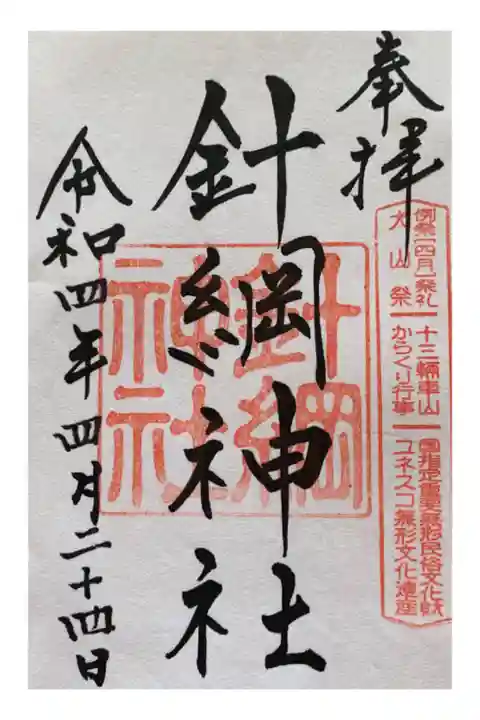 奉拝
例祭(四月)祭礼 十三輛車山 国指定重要無形民俗文化財
犬山祭 からくり行事 ユネスコ無形文化遺産
針綱神社
針綱
神社
令和四年四月二十四日